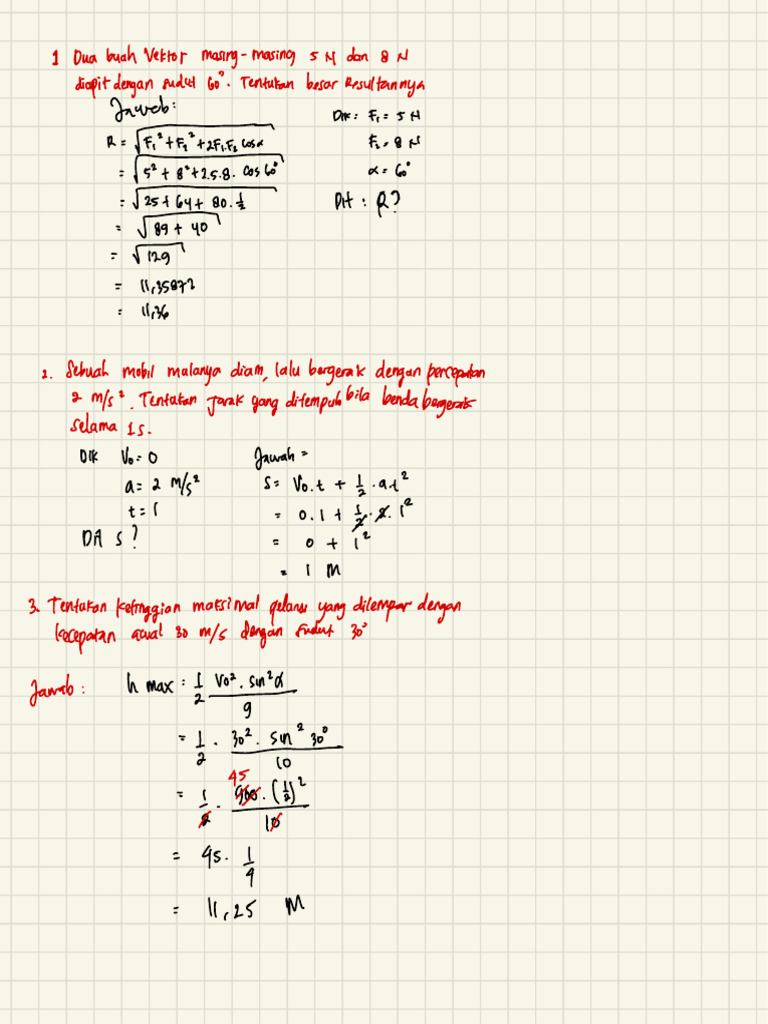 1 Dua buah Vektor masing-masing 5 N dan 8 N
diapit dengan sudut 60°. Tentukan besar Resultannya
Jawab:
Dik: F₁ = 5 N
F₂ = 8 N
α = 60°
Dit : R?
R = √(F₁² + F₂² + 2F₁.F₂ cos α)
= √(5² + 8² + 2.5.8. cos 60°)
= √(25 + 64 + 80. 1/2)
= √(89 + 40)
= √129
= 11,35872
= 11,36
2. Sebuah mobil mulanya diam, lalu bergerak dengan percepatan
2 m/s². Tentukan Jarak yang ditempuh bila benda bergerak
selama 1s.
Dik V₀ = 0
a = 2 m/s²
t = 1
s?
Jawab =
S = V₀.t + 1/2 . a.t²
= 0.1 + 1/2 . 2. 1²
= 0 + 1²
= 1 M
3. Tentukan ketinggian maksimal peluru yang dilempar dengan
kecepatan awal 30 m/s dengan sudut 30°
Jawab :
h max = 1/2 V₀² . sin² α / g
= 1/2 . 30² . sin² 30° / 10
45
= 1/2 . 900 . (1/2)² / 10
= 45 . 1/4
= 11,25 M